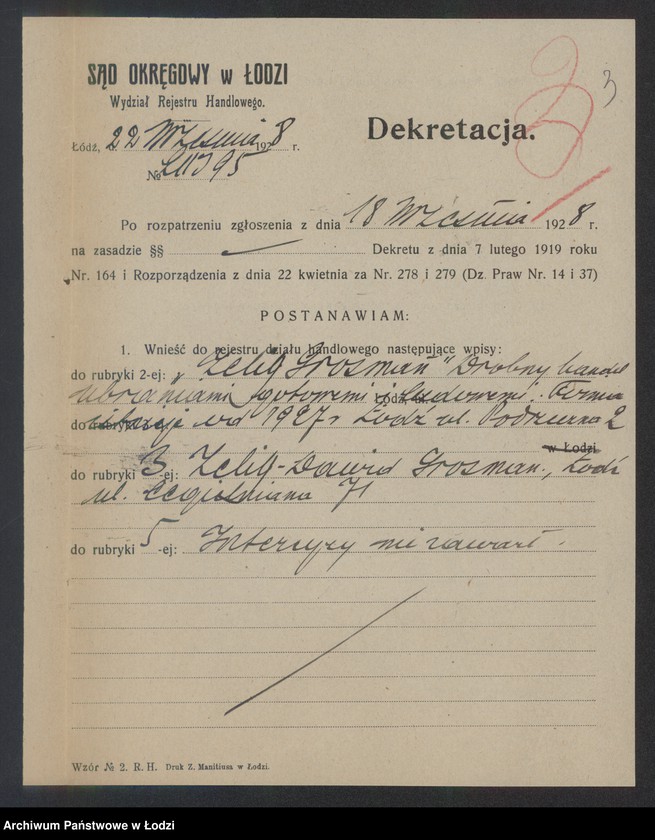 SĄD OKRĘGOWY w ŁODZI
Wydział Rejestru Handlowego.
3
Dekretacja.
Łódź, d. 22 Września 1928 r.
№
Po rozpatrzeniu zgłoszenia z dnia 18 Września 1928 r.
na zasadzie §§ Dekretu z dnia 7 lutego 1919 roku
Nr. 164 i Rozporządzenia z dnia 22 kwietnia za Nr. 278 i 279 (Dz. Praw Nr. 14 i 37)
POSTANAWIAM:
1. Wnieść do rejestru działu handlowego następujące wpisy:
do rubryki 2-ej: „Zelig Grosman" Drobny handel
ubraniami gotowemi i Firma
istnieje od 1927 r Łódź ul. Podrzeczna 2
w Łodzi
do rubryki 3-ej: Zelig-Dawid Grosman, Łódź
ul. Cegielniana 71
do rubryki 5-ej: Intercyzy nie zawarł.
Wzór № 2. R. H. Druk Z. Manitiusa w Łodzi.
Archiwum Państwowe w Łodzi